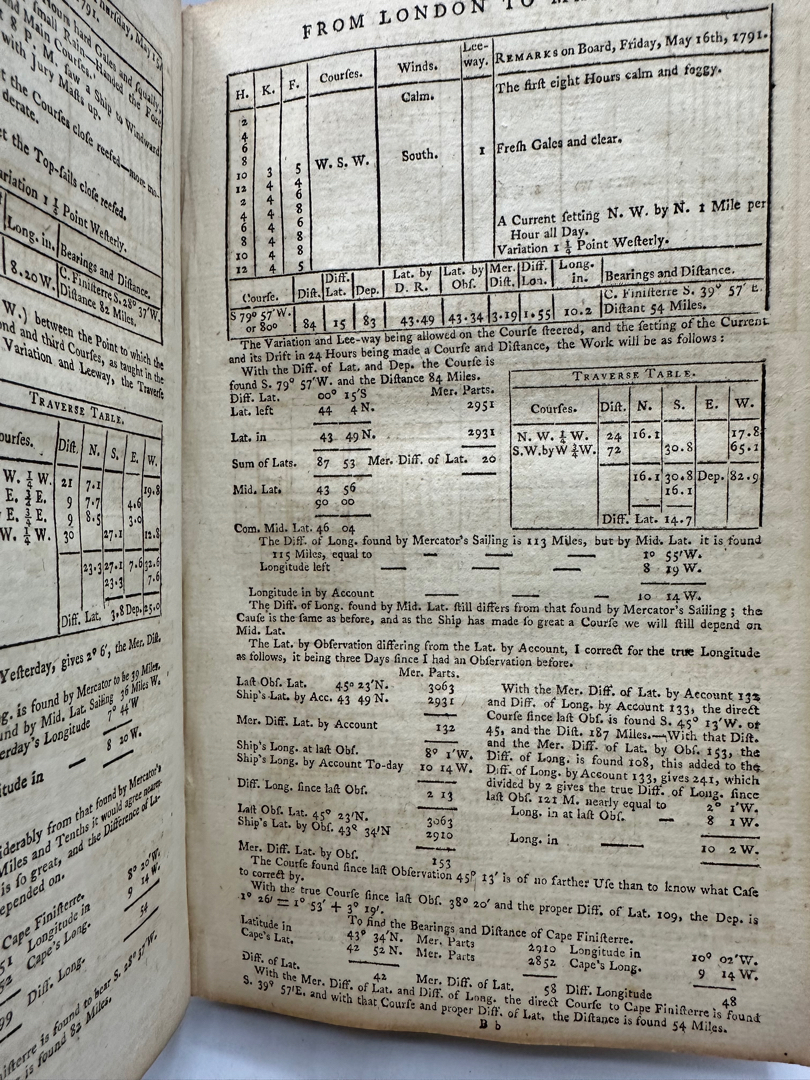 1791.
Thurſday, May 15
hard Gales and ſqually,
ſmall Rain—Handed the Fore
and Main Courſes.
8 P. M. ſaw a Ship to Windward
with Jury Maſts up.
t the Courſes cloſe reefed—more mo-
derate.
et the Top-ſails cloſe reefed.
ariation 1 ¼ Point Weſterly.
Long. in. Bearings and Diſtance.
8.20W. C. Finiſterre S. 28° 37′W.
Diſtance 82 Miles.
W.) between the Point to which the
ond and third Courſes, as taught in the
Variation and Leeway, the Traverſe
TRAVERSE TABLE.
ourſes. Diſt. N. S. E. W.
W. ¼ W. 21 7.1 19.8
E. ¾ E. 9 7.7 4.6
E. ¾ E. 9 8.5 3.0
W. ¼ W. 30 27.1 12.8
23.3 27.1 7.6 32.6
23.3 7.6
Diff. Lat. 3.8 Dep. 25.0
Yeſterday, gives 2° 6′, the Mer. Diſt.
g. is found by Mercator to be 39 Miles.
und by Mid. Lat. Sailing 36 Miles W.
erday's Longitude 7° 44′W
itude in — 8 20 W.
ſiderably from that found by Mercator's
Miles and Tenths it would agree nearer
is ſo great, and the Difference of La-
epended on.
Cape Finiſterre.
51 Longitude in 8° 20′W.
52 Cape's Long. 9 14 W.
54
99 Diff. Long.
iniſterre is found to bear S. 28° 37′W.
is found 82 Miles.
FROM LONDON TO
H. K. F. Courſes. Winds. Lee-way. REMARKS on Board, Friday, May 16th, 1791.
Calm. The firſt eight Hours calm and foggy.
2
4
6
8
10 3 5 W. S. W. South. 1 Freſh Gales and clear.
12 4 4
2 4 6
4 4 8
6 4 6
8 4 8 A Current ſetting N. W. by N. 1 Mile per
10 4 8 Hour all Day.
12 4 5 Variation 1 ¼ Point Weſterly.
Courſe. Diſt. Diff. Lat. Dep. Lat. by D. R. Lat. by Obſ. Mer. Diſt. Diff. Lon. Long. in. Bearings and Diſtance.
S 79° 57′W. or 80° 84 15 83 43.49 43.34 3.19 1.55 10.2 C. Finiſterre S. 39° 57′ E.
Diſtant 54 Miles.
The Variation and Lee-way being allowed on the Courſe ſteered, and the ſetting of the Current
and its Drift in 24 Hours being made a Courſe and Diſtance, the Work will be as follows:
With the Diff. of Lat. and Dep. the Courſe is
found S. 79° 57′W. and the Diſtance 84 Miles.
Diff. Lat. 00° 15′S Mer. Parts.
Lat. left 44 4 N. 2951
Lat. in 43 49 N. 2931
Sum of Lats. 87 53 Mer. Diff. of Lat. 20
Mid. Lat. 43 56
90 00
Com. Mid. Lat. 46 04
TRAVERSE TABLE.
Courſes. Diſt. N. S. E. W.
N. W. ¼ W. 24 16.1 17.8
S.W.by W ¾W. 72 30.8 65.1
16.1 30.8 Dep. 82.9
16.1
Diff. Lat. 14.7
The Diff. of Long. found by Mercator's Sailing is 113 Miles, but by Mid. Lat. it is found
115 Miles, equal to — — — 1° 55′W.
Longitude left — — — 8 19 W.
Longitude in by Account 10 14 W.
The Diff. of Long. found by Mid. Lat. ſtill differs from that found by Mercator's Sailing; the
Cauſe is the ſame as before, and as the Ship has made ſo great a Courſe we will ſtill depend on
Mid. Lat.
The Lat. by Obſervation differing from the Lat. by Account, I correct for the true Longitude
as follows, it being three Days ſince I had an Obſervation before.
Mer. Parts.
Laſt Obſ. Lat. 45° 23′N. 3063
Ship's Lat. by Acc. 43 49 N. 2931
Mer. Diff. Lat. by Account 132
Ship's Long. at laſt Obſ. 8° 1′W.
Ship's Long. by Account To-day 10 14 W.
Diff. Long. ſince laſt Obſ. 2 13
Laſt Obſ. Lat. 45° 23′N. 3063
Ship's Lat. by Obſ. 43° 34′N 2910
Mer. Diff. Lat. by Obſ. 153
With the Mer. Diff. of Lat. by Account 132
and Diff. of Long. by Account 133, the direct
Courſe ſince laſt Obſ. is found S. 45° 13′W. or
45, and the Diſt. 187 Miles.—With that Diſt.
and the Mer. Diff. of Lat. by Obſ. 153, the
Diff. of Long. is found 108, this added to the
Diff. of Long. by Account 133, gives 241, which
divided by 2 gives the true Diff. of Long. ſince
laſt Obſ. 121 M. nearly equal to 2° 1′W.
Long. in at laſt Obſ. — 8 1 W.
Long. in — 10 2 W.
The Courſe found ſince laſt Obſervation 45° 13′ is of no farther Uſe than to know what Caſe
to correct by.
With the true Courſe ſince laſt Obſ. 38° 20′ and the proper Diff. of Lat. 109, the Dep. is
1° 26′ = 1° 53′ + 3° 19′.
To find the Bearings and Diſtance of Cape Finiſterre.
Latitude in 43° 34′N. Mer. Parts 2910 Longitude in 10° 02′W.
Cape's Lat. 42 52 N. Mer. Parts 2852 Cape's Long. 9 14 W.
Diff. of Lat. 42 Mer. Diff. of Lat. 58 Diff. Longitude 48
With the Mer. Diff. of Lat. and Diff. of Long. the direct Courſe to Cape Finiſterre is found
S. 39° 57′E. and with that Courſe and proper Diff. of Lat. the Diſtance is found 54 Miles.
B b